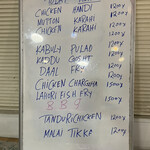 CHICKEN HANDI 1200/
MUTTON KARAHI
CHICKEN KARAHI 1200/
KABULY PULAO 1200/
KADDU GOSHT 1200/
DAAL FRY 1200/
CHICKEN CHARGHA 1500/
LAHORI FISH FRY 1500/
TANDURI CHICKEN 1200/
MALAI TIKKA 1200/